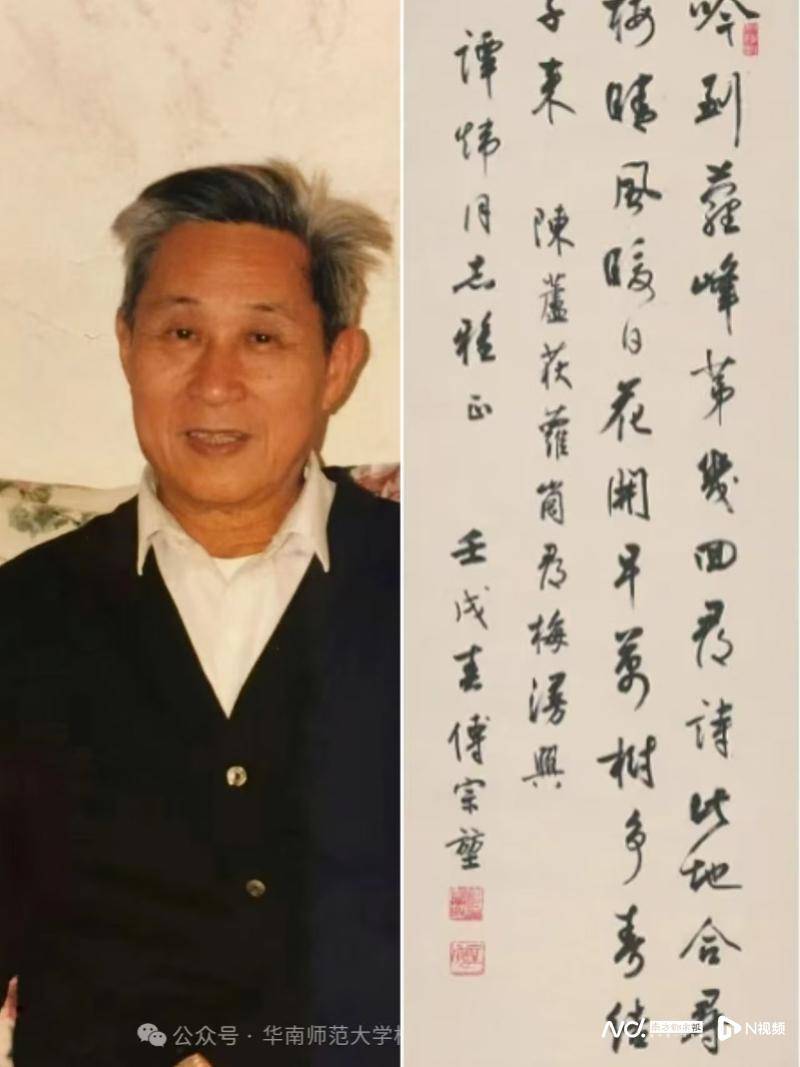 吟到蘿峰第幾回尋詩此地合尋
梅晴風暖日花開早萬樹爭春結
子來 陳蘆荻蘿崗尋梅漫興
譚煒同志雅正 壬戌春傅宗堃
公众号·华南师范大学
N视频